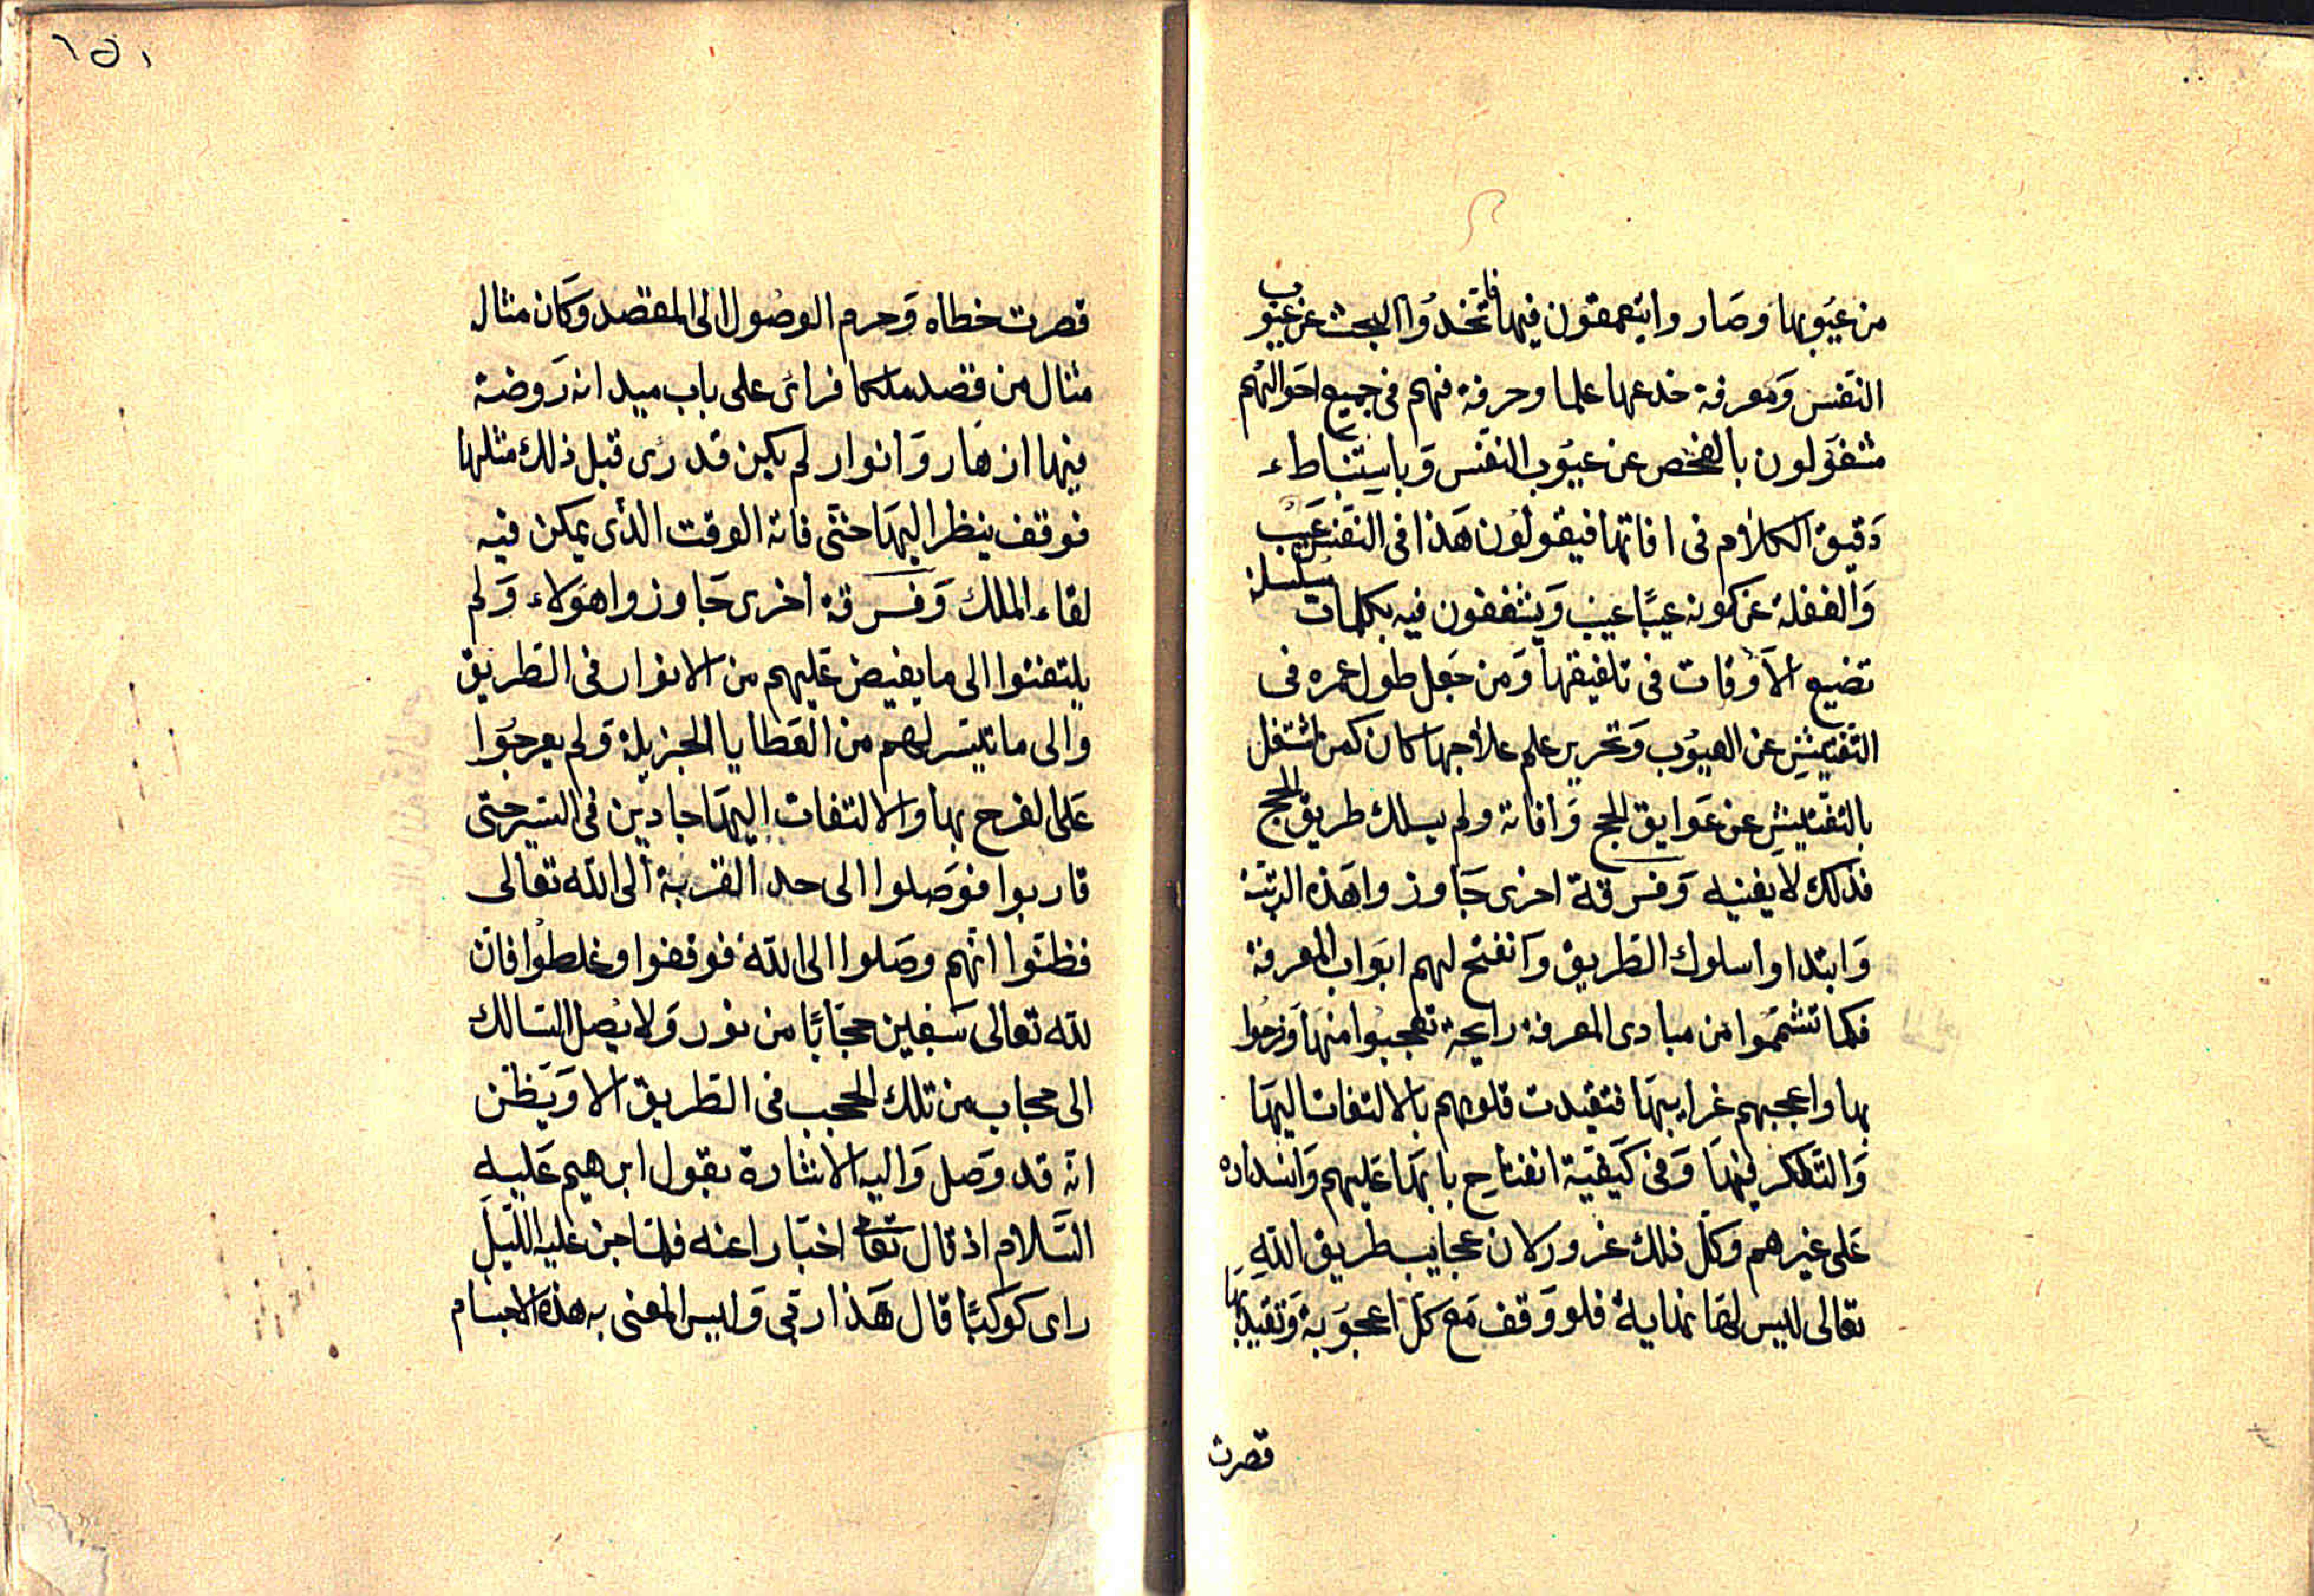 من عيوبها وصاروا يتعمقون فيها فاتخذوا البحث عن عيوب
النفس ومعرفة خدعها علما وحرفة فهم في جميع احوالهم
مشغولون بالفحص عن عيوب النفس وباستنباط
دقيق الكلام في افاتها فيقولون هذا في النفس عيب
والغفلة عن كونه عيبًا عيب ويشغفون فيه بكلمات مسلسلة
تضيع الاوقات في تلفيقها ومن جعل طول عمره في
التفتيش عن العيوب وتحرير علم علاجها كان كمن اشتغل
بالتفتيش عن عوايق الحج وافاته ولم يسلك طريق الحج
فذلك لا يغنيه وفرقة اخرى جاوزوا هذه الرتبة
وابتداوا سلوك الطريق وانفتح لهم ابواب المعرفة
فكما تشمموا من مبادى المعرفة رايحة تعجبوا منها وفرحوا
بها واعجبهم غرايبها فتقيدت قلوبهم بالالتفات اليها
والتفكر فيها وفي كيفية انفتاح بابها عليهم وانسداده
على غيرهم وكل ذلك غرور لان عجايب طريق الله
تعالى ليس لها نهاية فلو وقف مع كل اعجوبة وتقيد بها
قصرت
١٥١
قصرت خطاه وحرم الوصول الى المقصد وكان مثال
مثال من قصد ملكا فراى على باب ميدانه روضة
فيها ازهار وانوار لم يكن قد رى قبل ذلك مثلها
فوقف ينظر اليها حتى فاته الوقت الذى يمكن فيه
لقاء الملك وفرقة اخرى جاوزوا هولاء ولم
يلتفتوا الى ما يفيض عليهم من الانوار في الطريق
والى ما تيسر لهم من العطايا الجزيلة ولم يعرجوا
على الفرح بها والالتفات اليها جادين في السير حتى
قاربوا فوصلوا الى حد القربة الى الله تعالى
فظنوا انهم وصلوا الى الله فوقفوا وغلطوا فان
لله تعالى سبعين حجابًا من نور ولا يصل السالك
الى حجاب من تلك الحجب في الطريق الا ويظن
انه قد وصل واليه الاشارة بقول ابرهيم عليه
السلام اذ قال تعالى اخبارا عنه فلما جن عليه الليل
راى كوكبًا قال هذا ربى وليس المعنى به هذه الاجسام